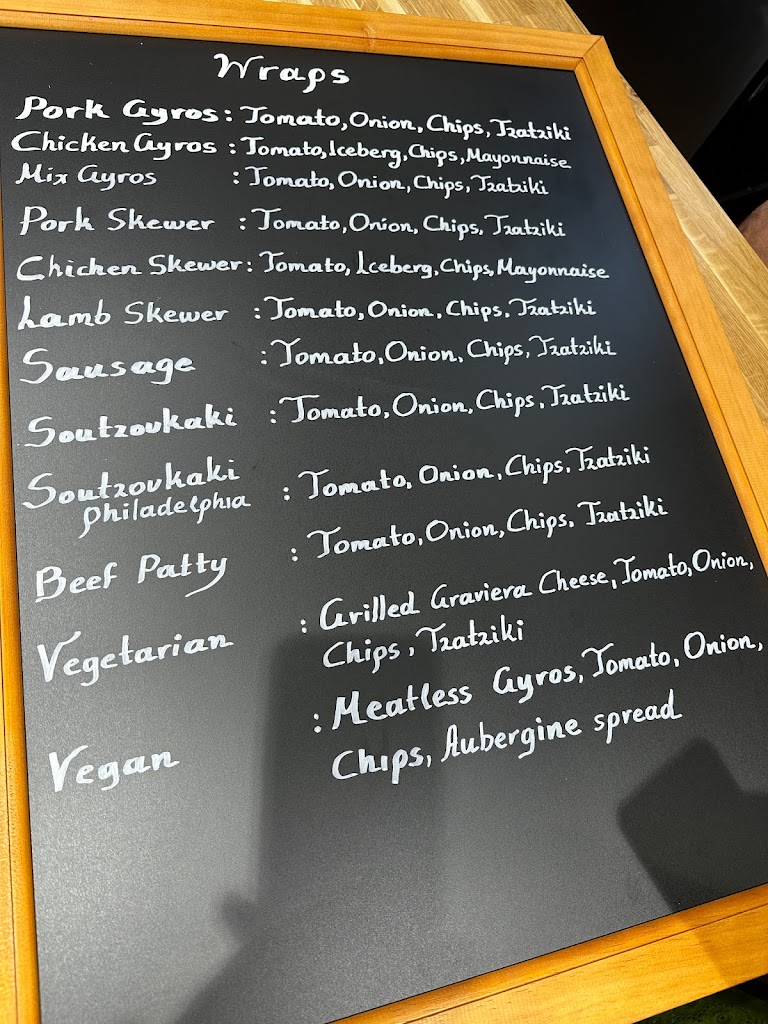 Wraps
Pork Gyros : Tomato, Onion, Chips, Tzatziki
Chicken Gyros : Tomato, Iceberg, Chips, Mayonnaise
Mix Gyros : Tomato, Onion, Chips, Tzatziki
Pork Skewer : Tomato, Onion, Chips, Tzatziki
Chicken Skewer : Tomato, Iceberg, Chips, Mayonnaise
Lamb Skewer : Tomato, Onion, Chips, Tzatziki
Sausage : Tomato, Onion, Chips, Tzatziki
Soutzoukaki : Tomato, Onion, Chips, Tzatziki
Soutzoukaki
philadelphia : Tomato, Onion, Chips, Tzatziki
Beef Patty : Tomato, Onion, Chips, Tzatziki
Vegetarian : Grilled Graviera Cheese, Tomato, Onion,
Chips, Tzatziki
Vegan : Meatless Gyros, Tomato, Onion,
Chips, Aubergine spread